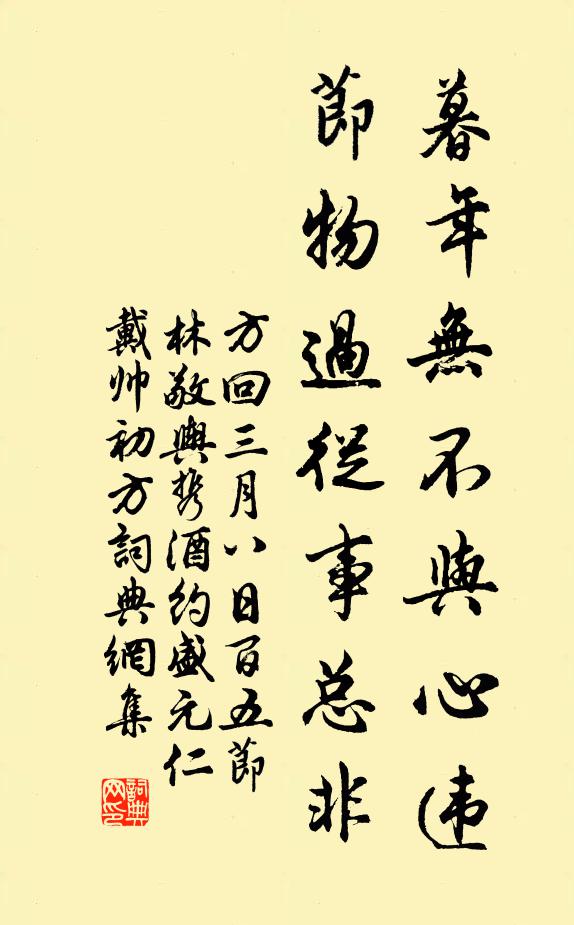 暮年無不與心违
節物過從事总非
方回三月八日百五節
林敬與携酒約盛元仁
戴帅初方詞典網集
詞典網印